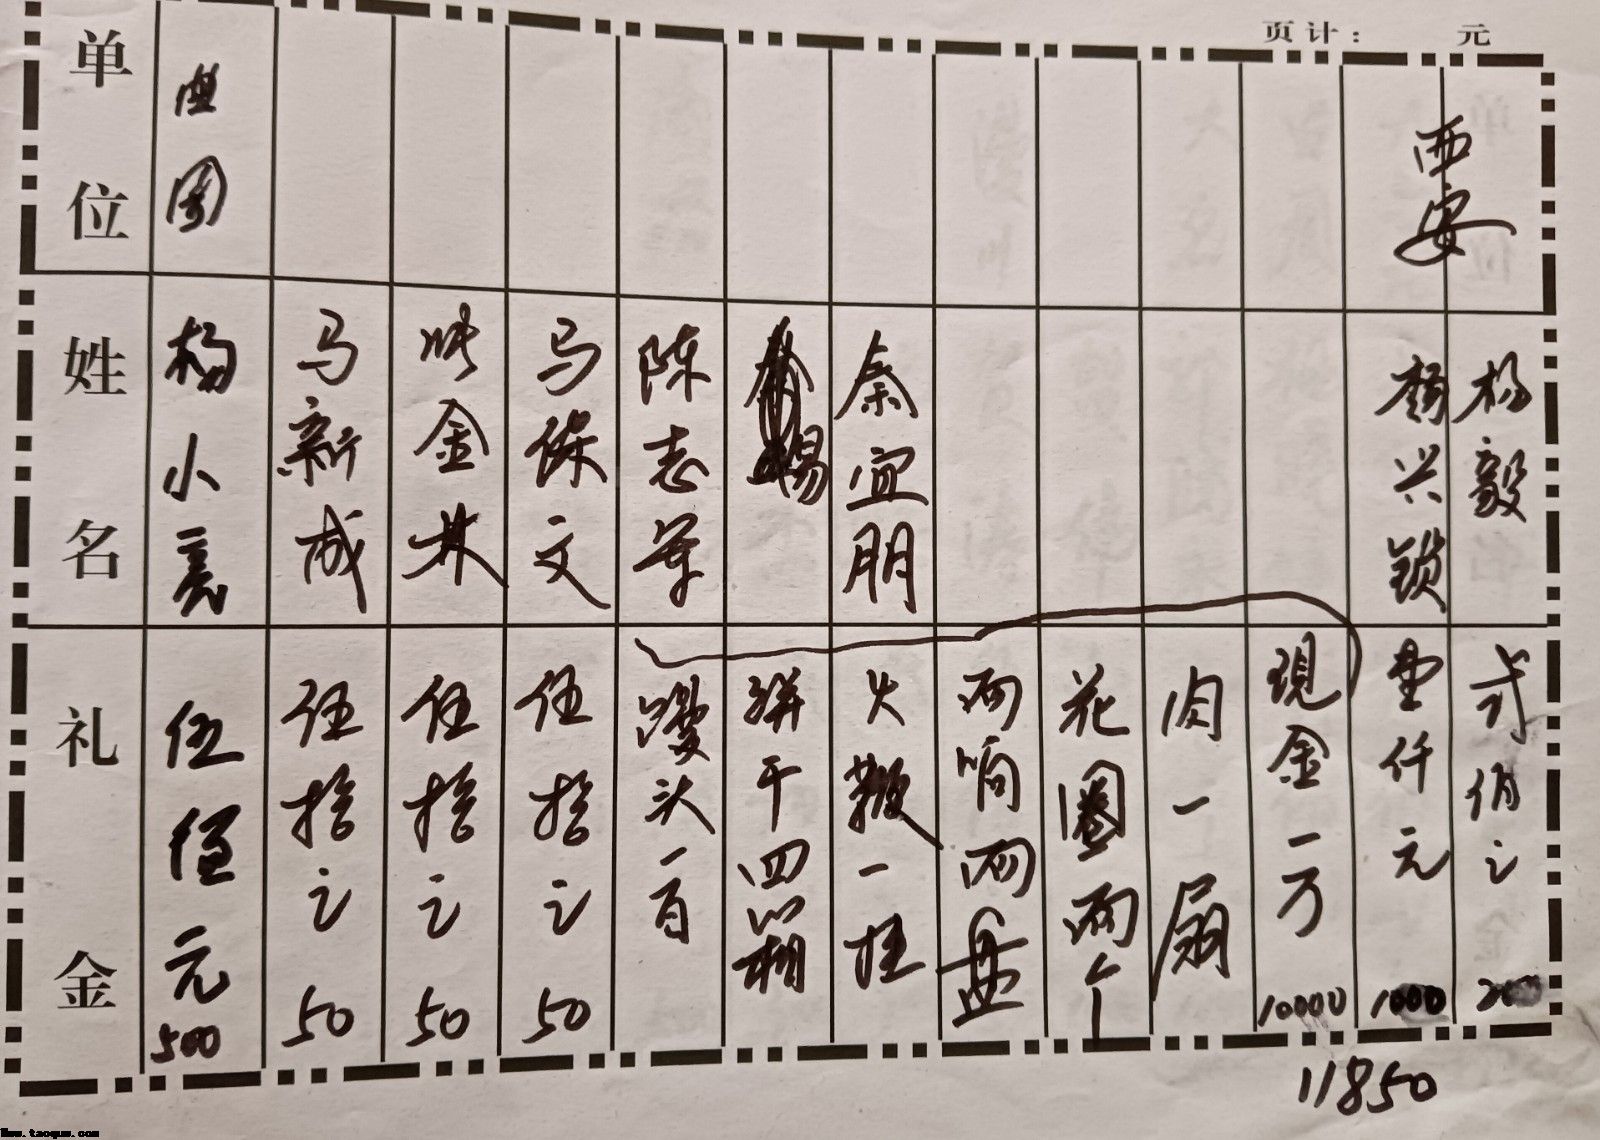 页计： 元
单位 西安
姓名 杨毅 杨兴锁 秦宜朋 陈志军 马保文 金林 马新成 杨小亮
礼金
弍佰元 200
壹仟元 1000
现金一万 10000
肉一扇
花圈两个
两响两盘
火鞭一挂
饼干四箱
馒头一百
伍拾元 50
伍拾元 50
伍拾元 50
伍佰元 500
11850
Www.taoquw.com